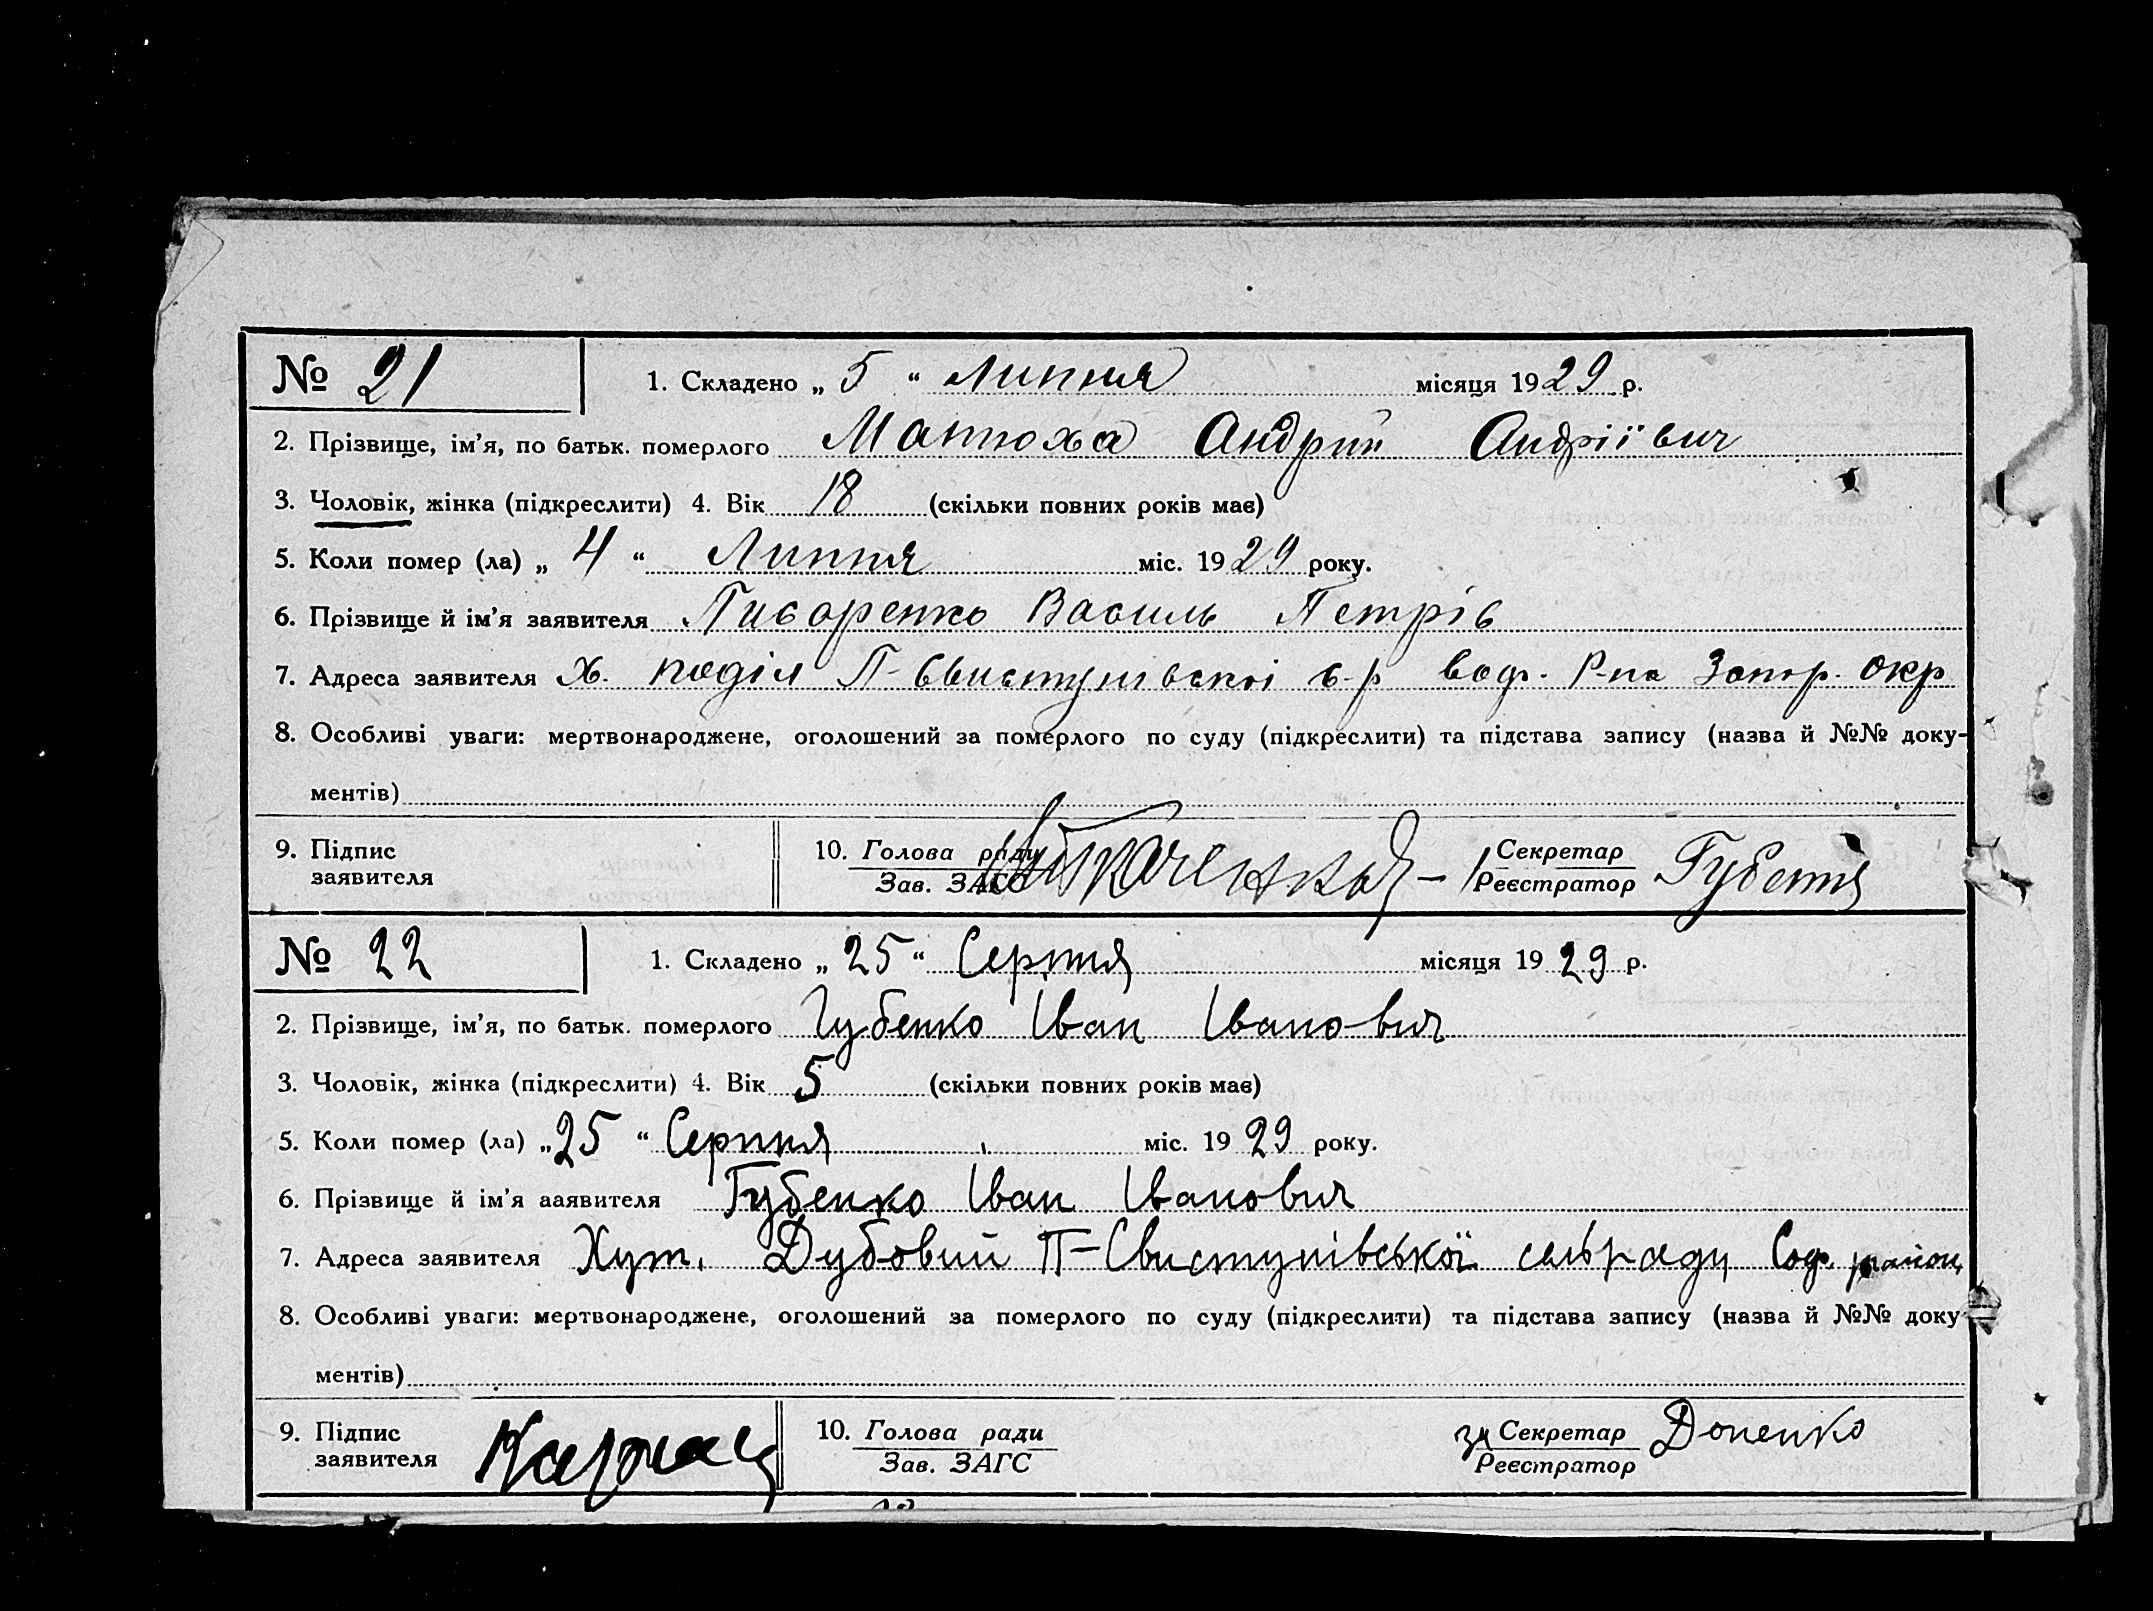 № 21 1. Складено „ 5 “ Липня місяця 1929 р.
2. Прізвище, ім’я, по батьк. померлого Матюха Андрій Андріївич
3. Чоловік, жінка (підкреслити) 4. Вік 18 (скільки повних років має)
5. Коли помер (ла) „ 4 “ Липня міс. 1929 року.
6. Прізвище й ім’я заявителя Писаренко Василь Петрів
7. Адреса заявителя х. поділ П-Свистунівскоі с-р Соф. Р-на Запор. окр
8. Особливі уваги: мертвонароджене, оголошений за померлого по суду (підкреслити) та підстава запису (назва й №№ доку-
ментів)
9. Підпис заявителя 10. Голова ради Секретар
Зав. ЗАГС Реєстратор
№ 22 1. Складено „ 25 “ Серпня місяця 1929 р.
2. Прізвище, ім’я, по батьк. померлого Губенко Іван Іванович
3. Чоловік, жінка (підкреслити) 4. Вік 5 (скільки повних років має)
5. Коли помер (ла) „ 25 “ Серпня міс. 1929 року.
6. Прізвище й ім’я ааявителя Губенко Іван Іванович
7. Адреса заявителя Хут. Дубовий П-Свистунівської сельради Соф. району
8. Особливі уваги: мертвонароджене, оголошений за померлого по суду (підкреслити) та підстава запису (назва й №№ доку
ментів)
9. Підпис заявителя 10. Голова ради за Секретар Доненко
Зав. ЗАГС Реєстратор